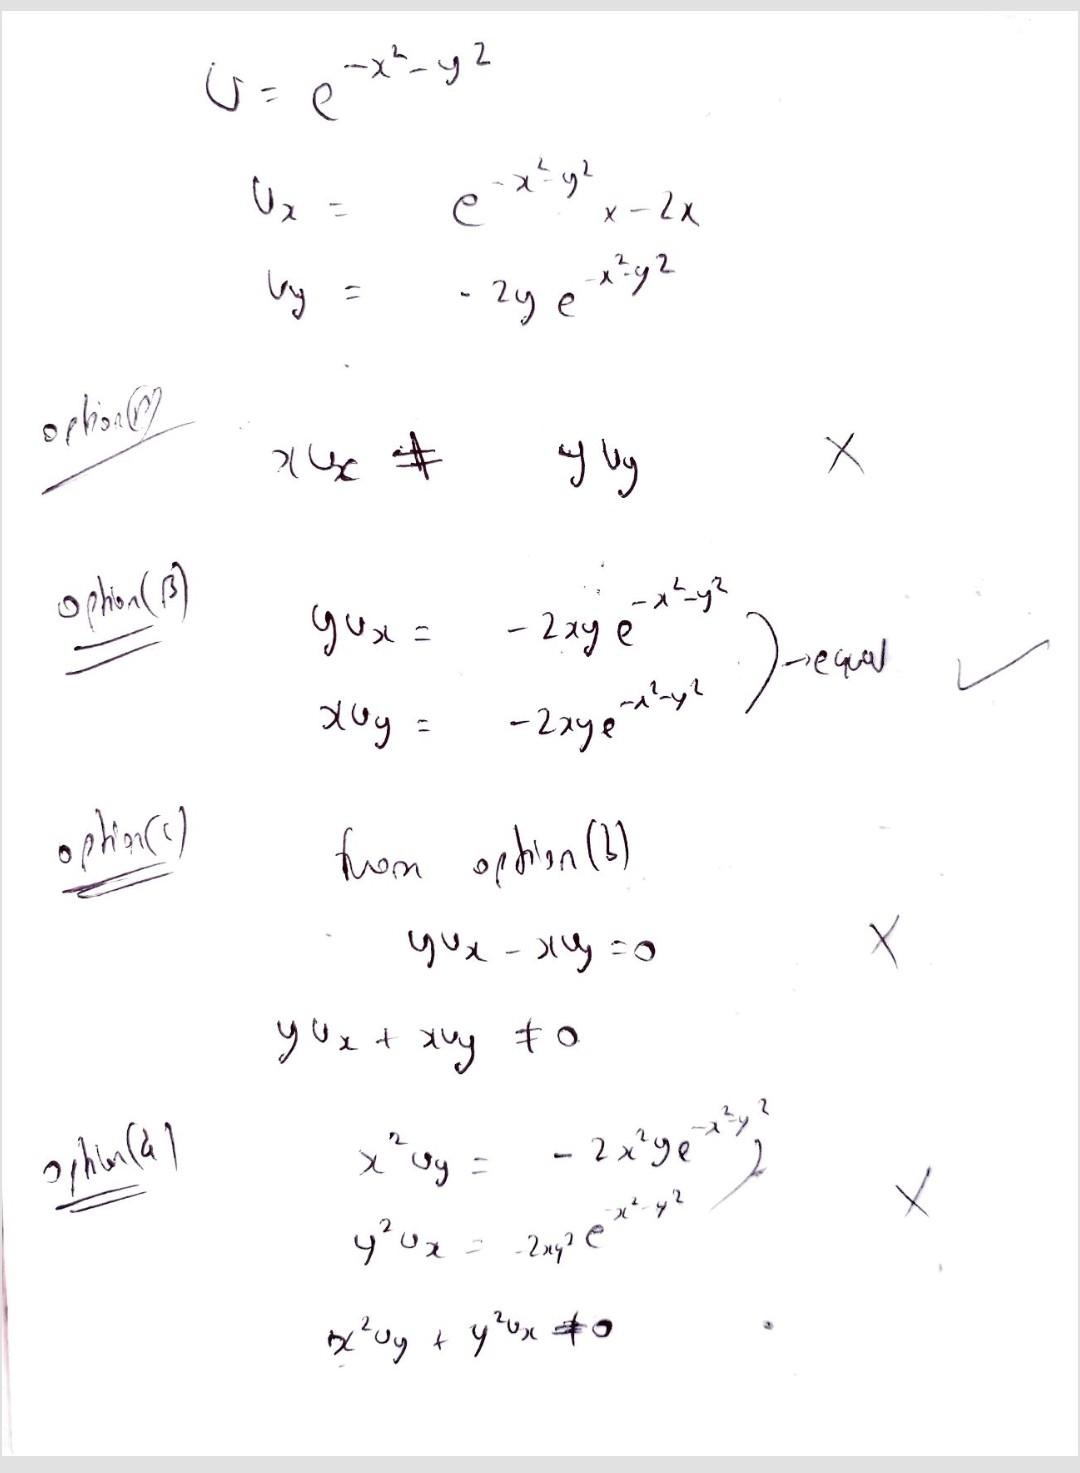 U = e^{-x²-y²}
Ux = e^{-x²-y²} x -2x
Uy = -2y e^{-x²-y²}
option(A)
xUx ≠ yUy ×
option(B)
yUx = -2xy e^{-x²-y²}
→ equal ✓
xUy = -2xy e^{-x²-y²}
option(c)
from option(b)
yUx - xUy = 0 ×
yUx + xUy ≠ 0
option(d)
x²Uy = -2x²y e^{-x²-y²}
×
y²Ux = -2xy² e^{-x²-y²}
x²Uy + y²Ux ≠ 0